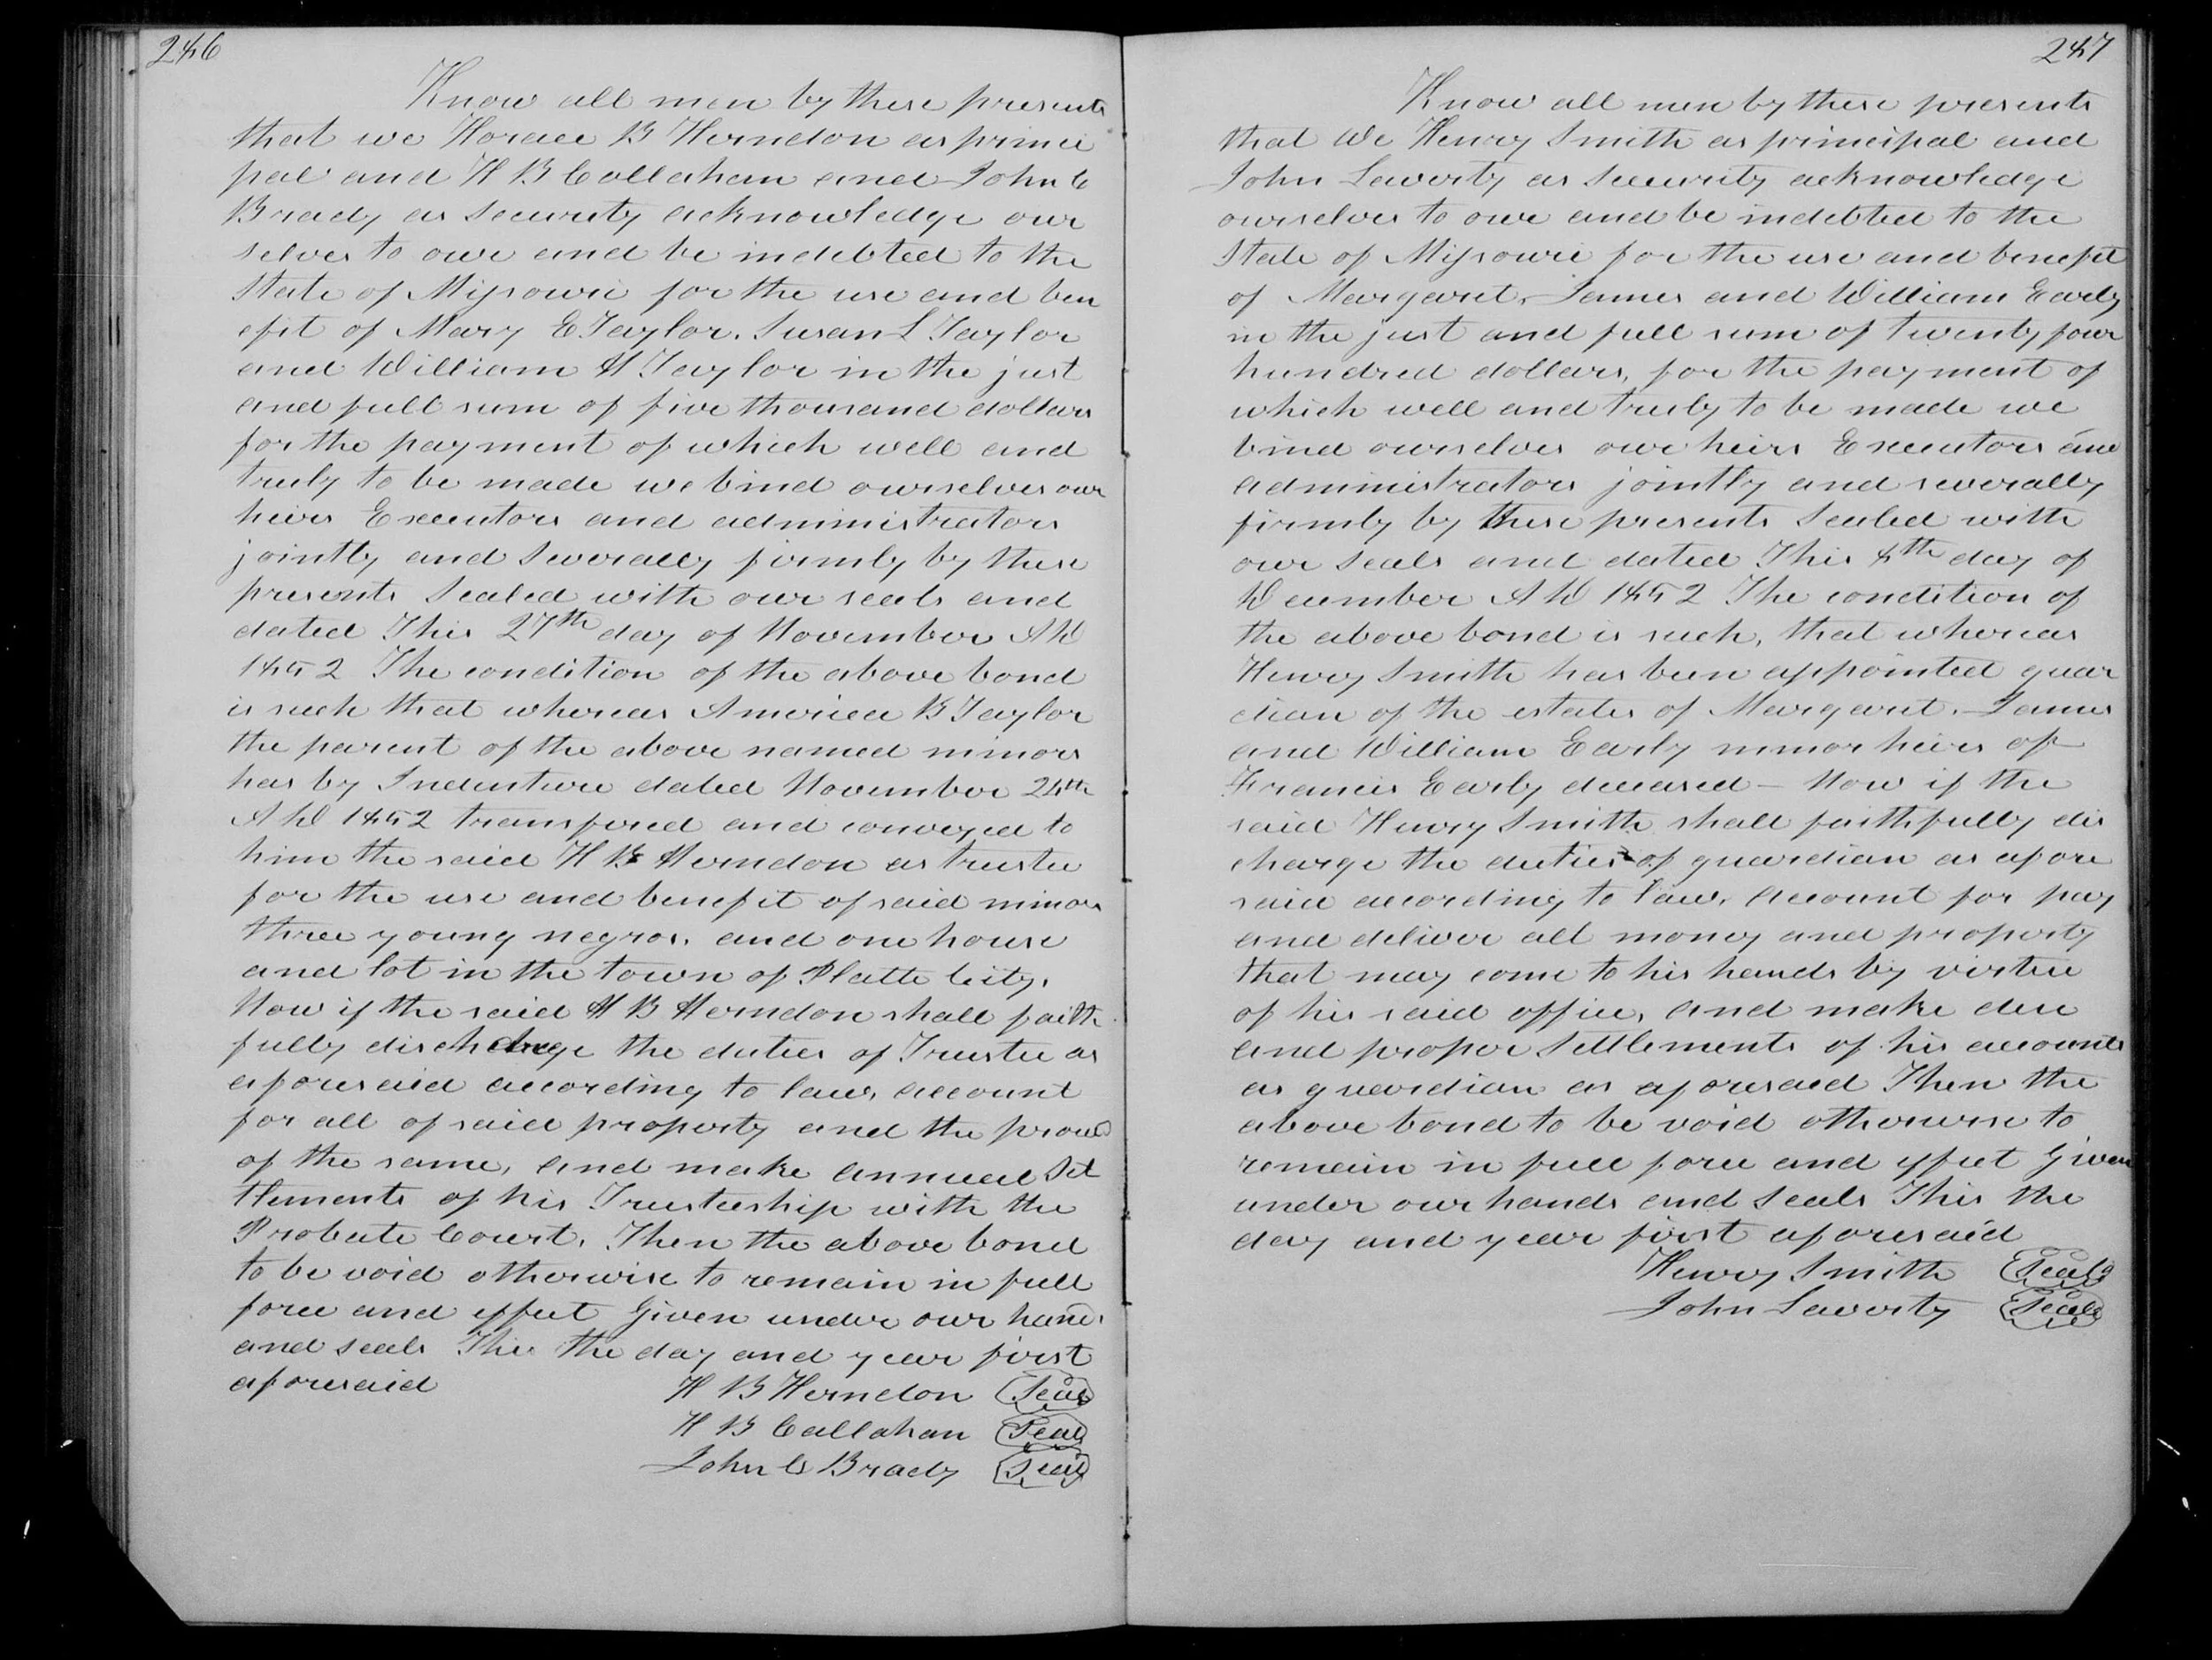 246
Know all men by these presents
that we Horace B Herndon as princi
pal and H B Callaham and John C
Brady as Security acknowledge our
selves to owe and be indebted to the
State of Missouri for the use and ben
efit of Mary E Taylor. Susan L Taylor
and William H Taylor in the just
and full sum of five thousand dollars
for the payment of which well and
truly to be made we bind ourselves our
heirs Executors and administrators
jointly and severally firmly by these
presents Sealed with our seals and
dated This 27th day of November AD
1852 The condition of the above bond
is such that whereas America B Taylor
the parent of the above named minors
has by Indenture dated November 24th
AD 1852 transfered and conveyed to
him the said H B Herndon as trustee
for the use and benefit of said minors
three young negros. and one house
and lot in the town of Platte City.
Now if the said H B Herndon shall faith
fully discharge the duties of Trustee as
aforesaid according to law, account
for all of said property and the proceed
of the same, and make annual Set
tlements of his Trusteeship with the
Probate Court. Then the above bond
to be void otherwise to remain in full
force and effect Given under our hands
and seals This the day and year first
aforesaid H B Herndon Seal
H B Callahan Seal
John C Brady Seal
247
Know all men by these presents
that We Henry Smith as principal and
John Laverty as Security acknowledge
ourselves to owe and be indebted to the
State of Missouri for the use and benefit
of Margaret, James and William Early
in the just and full sum of twenty four
hundred dollars, for the payment of
which well and truly to be made we
bind ourselves our heirs Executors and
administrators jointly and severally
firmly by these presents Sealed with
our seals and dated This 4th day of
December AD 1852 The condition of
the above bond is such, that whereas
Henry Smith has been appointed guar
dian of the estates of Margaret. James
and William Early minor heirs of
Francis Early deceased – Now if the
said Henry Smith shall faithfully dis
charge the duties of guardian as afore
said according to law, account for pay
and deliver all money and property
that may come to his hands by virtue
of his said office, and make due
and proper Settlements of his accounts
as guardian as aforesaid Then the
above bond to be void otherwise to
remain in full force and effect Given
under our hands and Seals This the
day and year first aforesaid
Henry Smith Seal
John Laverty Seal